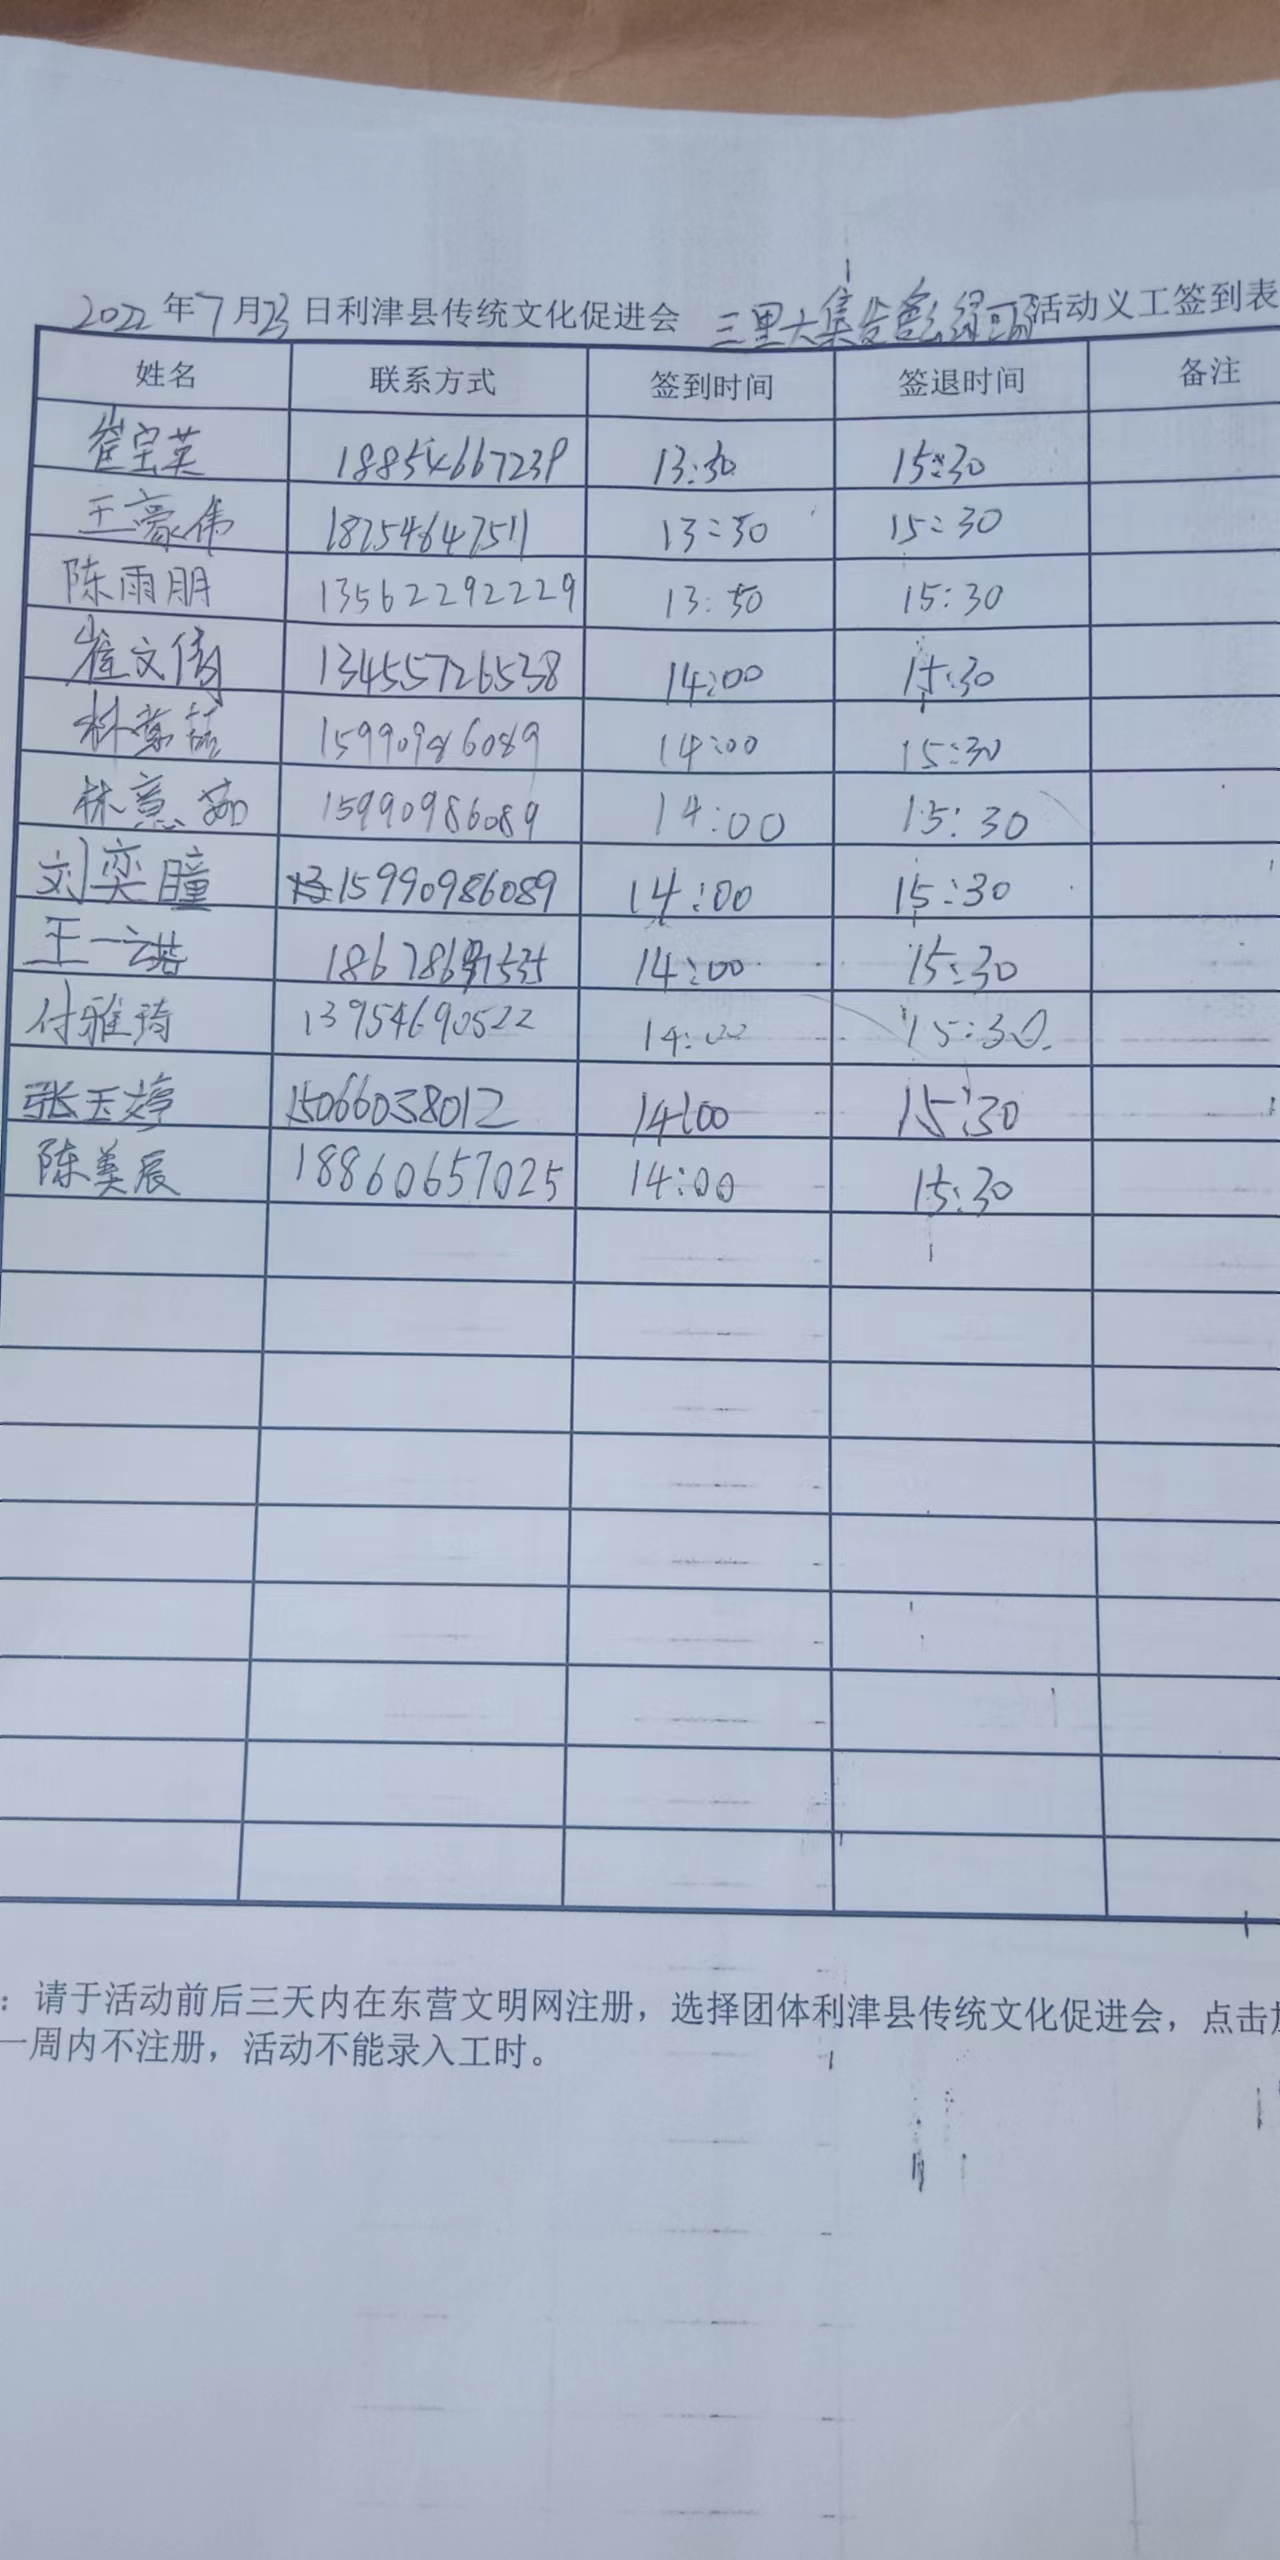 2022年7月23日利津县传统文化促进会 三里大集 活动义工签到表
姓名 联系方式 签到时间 签退时间 备注
崔宝英 18854667239 13:30 15:30
王豪伟 18254647511 13:30 15:30
陈雨朋 13562292229 13:30 15:30
崔文倩 13455726538 14:00 15:30
林 15990986089 14:00 15:30
林意茹 15990986089 14:00 15:30
刘奕瞳 15990986089 14:00 15:30
王一诺 14:00 15:30
付雅琦 13954690522 14:00 15:30
张玉婷 15066038012 14:00 15:30
陈美辰 18860657025 14:00 15:30
：请于活动前后三天内在东营文明网注册，选择团体利津县传统文化促进会，点击
一周内不注册，活动不能录入工时。